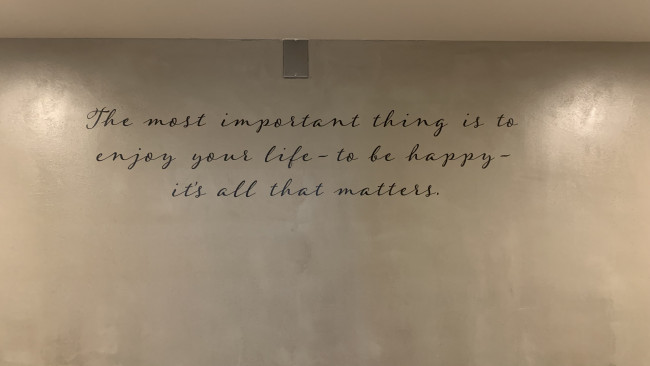 The most important thing is to
enjoy your life-to be happy-
it's all that matters.